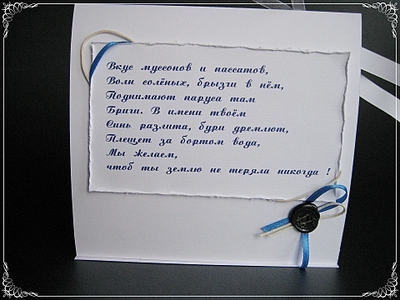 Вкус муссонов и пассатов,
Волн солёных, брызги в нём,
Поднимают паруса там
Бриги. В имени твоём
Синь разлита, бури дремлют,
Плещет за бортом вода,
Мы желаем,
чтоб ты землю не теряла никогда !